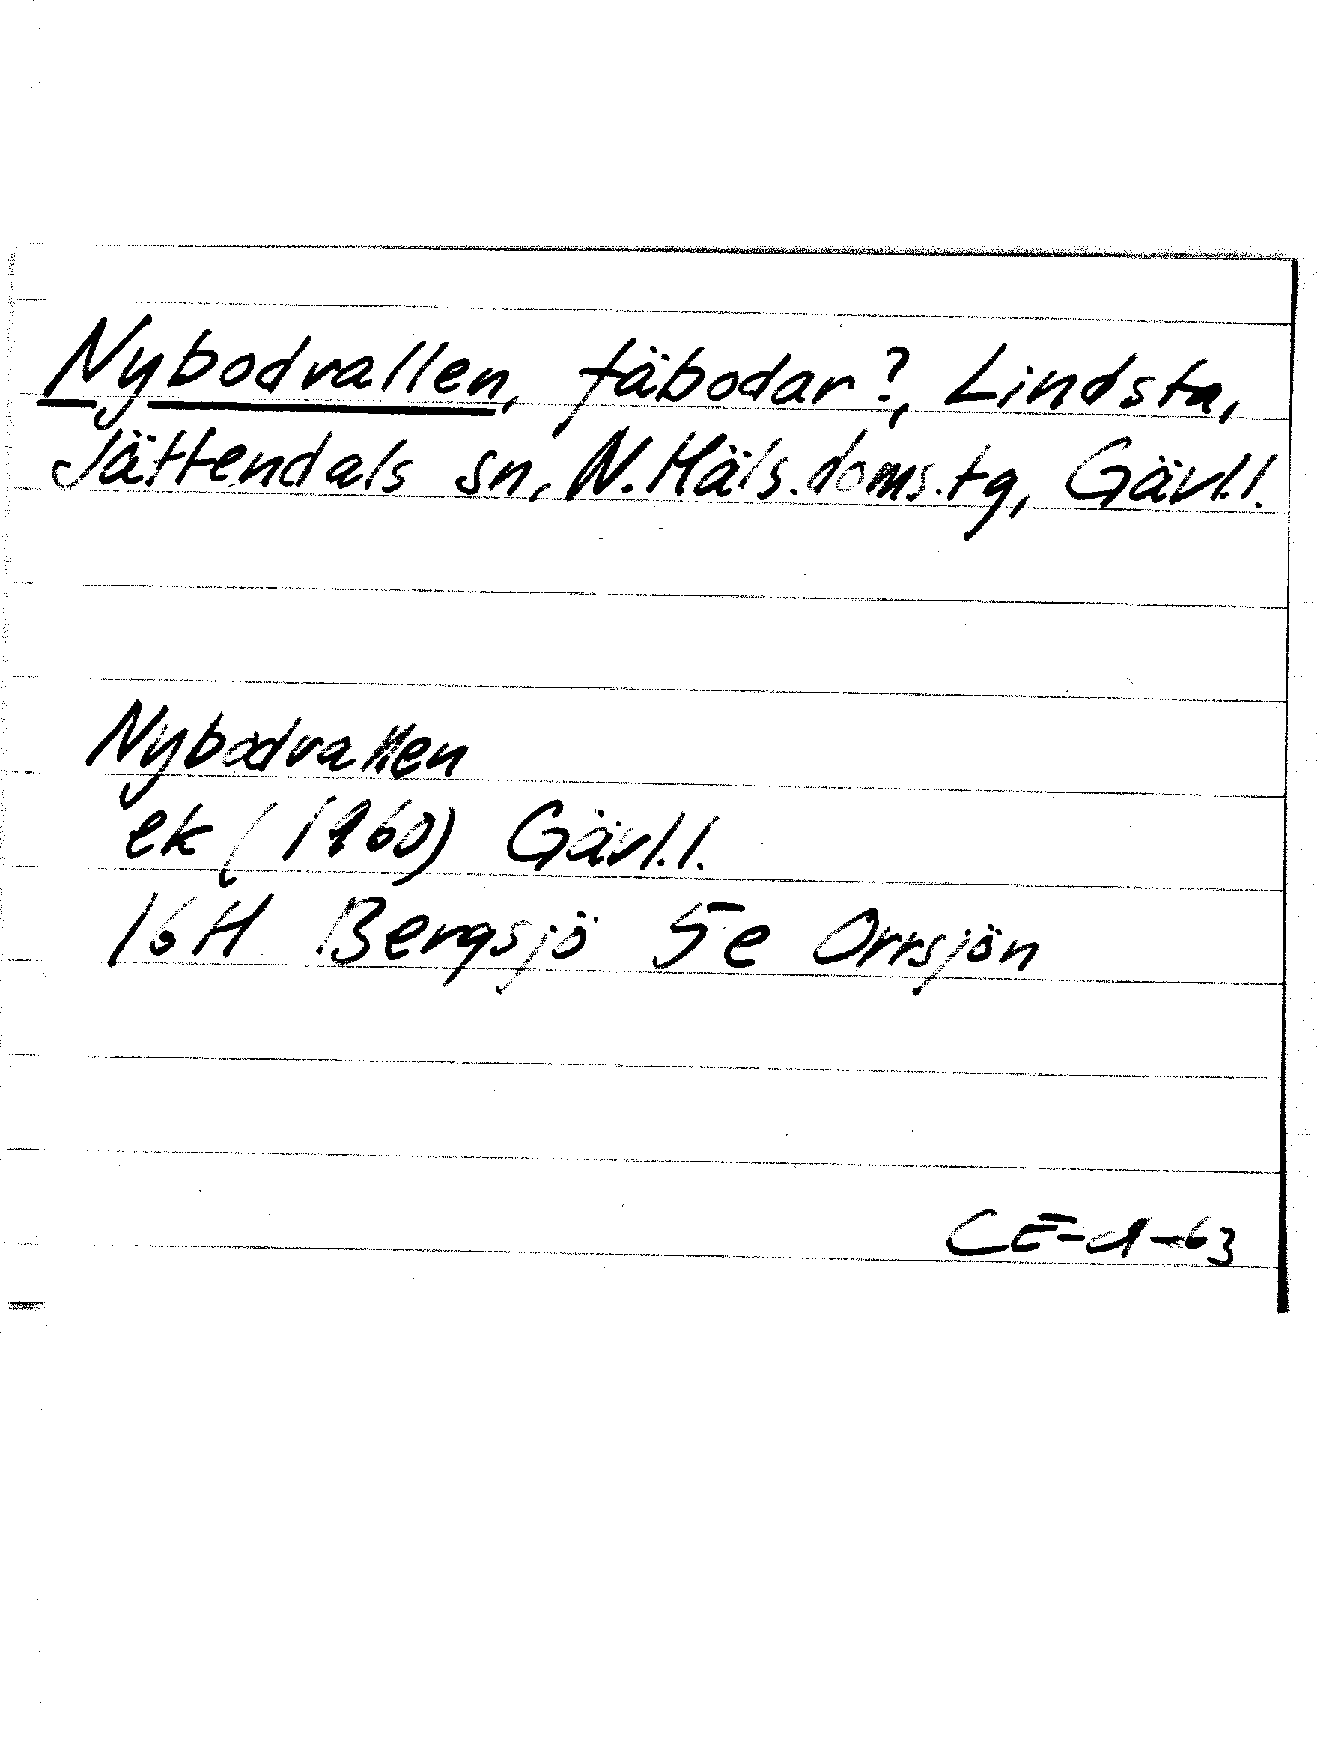 Nybodvallen, fäbodar?, Lindsta,
Jättendals sn, N. Häls. doms. tg, Gävl.l.
Nybodvallen
ek (1960) Gävl.l.
16H Bergsjö 5e Orrsjön
CE-d-63